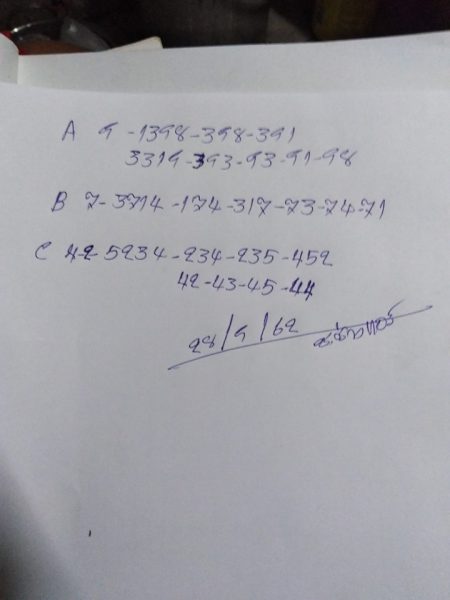 A 9 - 1398 - 398 - 391
3319 - 393 - 93 - 91 - 98
B 7 - 3714 - 174 - 317 - 73 - 74 - 71
C 42 - 5234 - 234 - 235 - 452
42 - 43 - 45 - 44
28/9/62